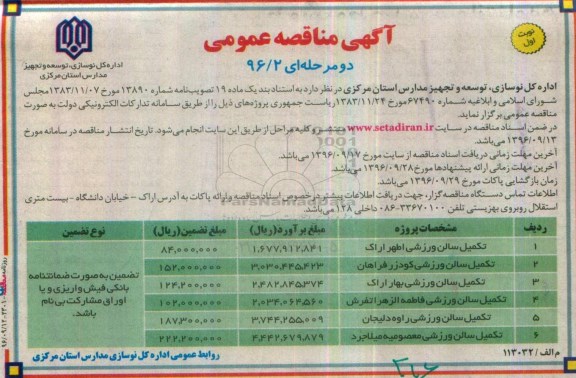 نوبت اول
آگهی مناقصه عمومی
دو مرحله‌ای ۹۶/۲
اداره کل نوسازی، توسعه و تجهیز
مدارس استان مرکزی
اداره کل نوسازی، توسعه و تجهیز مدارس استان مرکزی در نظر دارد به استناد بند یک ماده ۱۹ تصویب‌نامه شماره ۱۳۸۹۰ مورخ ۱۳۸۳/۱۱/۰۷ مجلس
شورای اسلامی و ابلاغیه شماره ۶۷۴۹۰ مورخ ۱۳۸۳/۱۱/۲۴ ریاست جمهوری پروژه‌های ذیل را از طریق سامانه تدارکات الکترونیکی دولت به صورت
مناقصه عمومی برگزار نماید.
در ضمن اسناد مناقصه در سایت www.setadiran.ir منتشر و کلیه مراحل از طریق این سایت انجام می‌شود. تاریخ انتشار مناقصه در سامانه مورخ
۱۳۹۶/۰۹/۱۳ می‌باشد.
آخرین مهلت زمانی دریافت اسناد مناقصه از سایت مورخ ۱۳۹۶/۰۹/۱۷ می‌باشد.
آخرین مهلت زمانی ارائه پیشنهادها مورخ ۱۳۹۶/۰۹/۲۸ می‌باشد.
زمان بازگشایی پاکات مورخ ۱۳۹۶/۰۹/۲۹ می‌باشد.
اطلاعات تماس دستگاه مناقصه‌گزار، جهت دریافت اطلاعات بیشتر در خصوص اسناد مناقصه و ارائه پاکات به آدرس اراک - خیابان دانشگاه - بیست متری
استقلال روبروی بهزیستی تلفن ۳۳۶۷۰۱۰۰-۰۸۶ داخلی ۱۲۸ می‌باشد.
ردیف مشخصات پروژه مبلغ برآورد (ریال) مبلغ تضمین (ریال) نوع تضمین
۱ تکمیل سالن ورزشی اطهر اراک ۱,۶۷۷,۹۱۲,۸۴۱ ۸۴,۰۰۰,۰۰۰
۲ تکمیل سالن ورزشی کودزر فراهان ۳,۰۳۰,۴۴۵,۴۲۳ ۱۵۲,۰۰۰,۰۰۰
۳ تکمیل سالن ورزشی بهار اراک ۲,۴۸۲,۸۴۵,۳۷۴ ۱۲۴,۲۰۰,۰۰۰
۴ تکمیل سالن ورزشی فاطمه الزهرا تفرش ۲,۰۳۴,۰۶۲,۵۶۰ ۱۰۲,۰۰۰,۰۰۰
۵ تکمیل سالن ورزشی راوه دلیجان ۳,۷۴۴,۲۵۵,۰۰۹ ۱۸۷,۳۰۰,۰۰۰
۶ تکمیل سالن ورزشی معصومیه میلاجرد ۴,۴۴۲,۶۷۹,۸۷۹ ۲۲۲,۲۰۰,۰۰۰
تضمین به صورت ضمانتنامه
بانکی فیش واریزی و یا
اوراق مشارکت بی نام
باشد.
م الف / ۱۱۳۰۳۲
روابط عمومی اداره کل نوسازی مدارس استان مرکزی